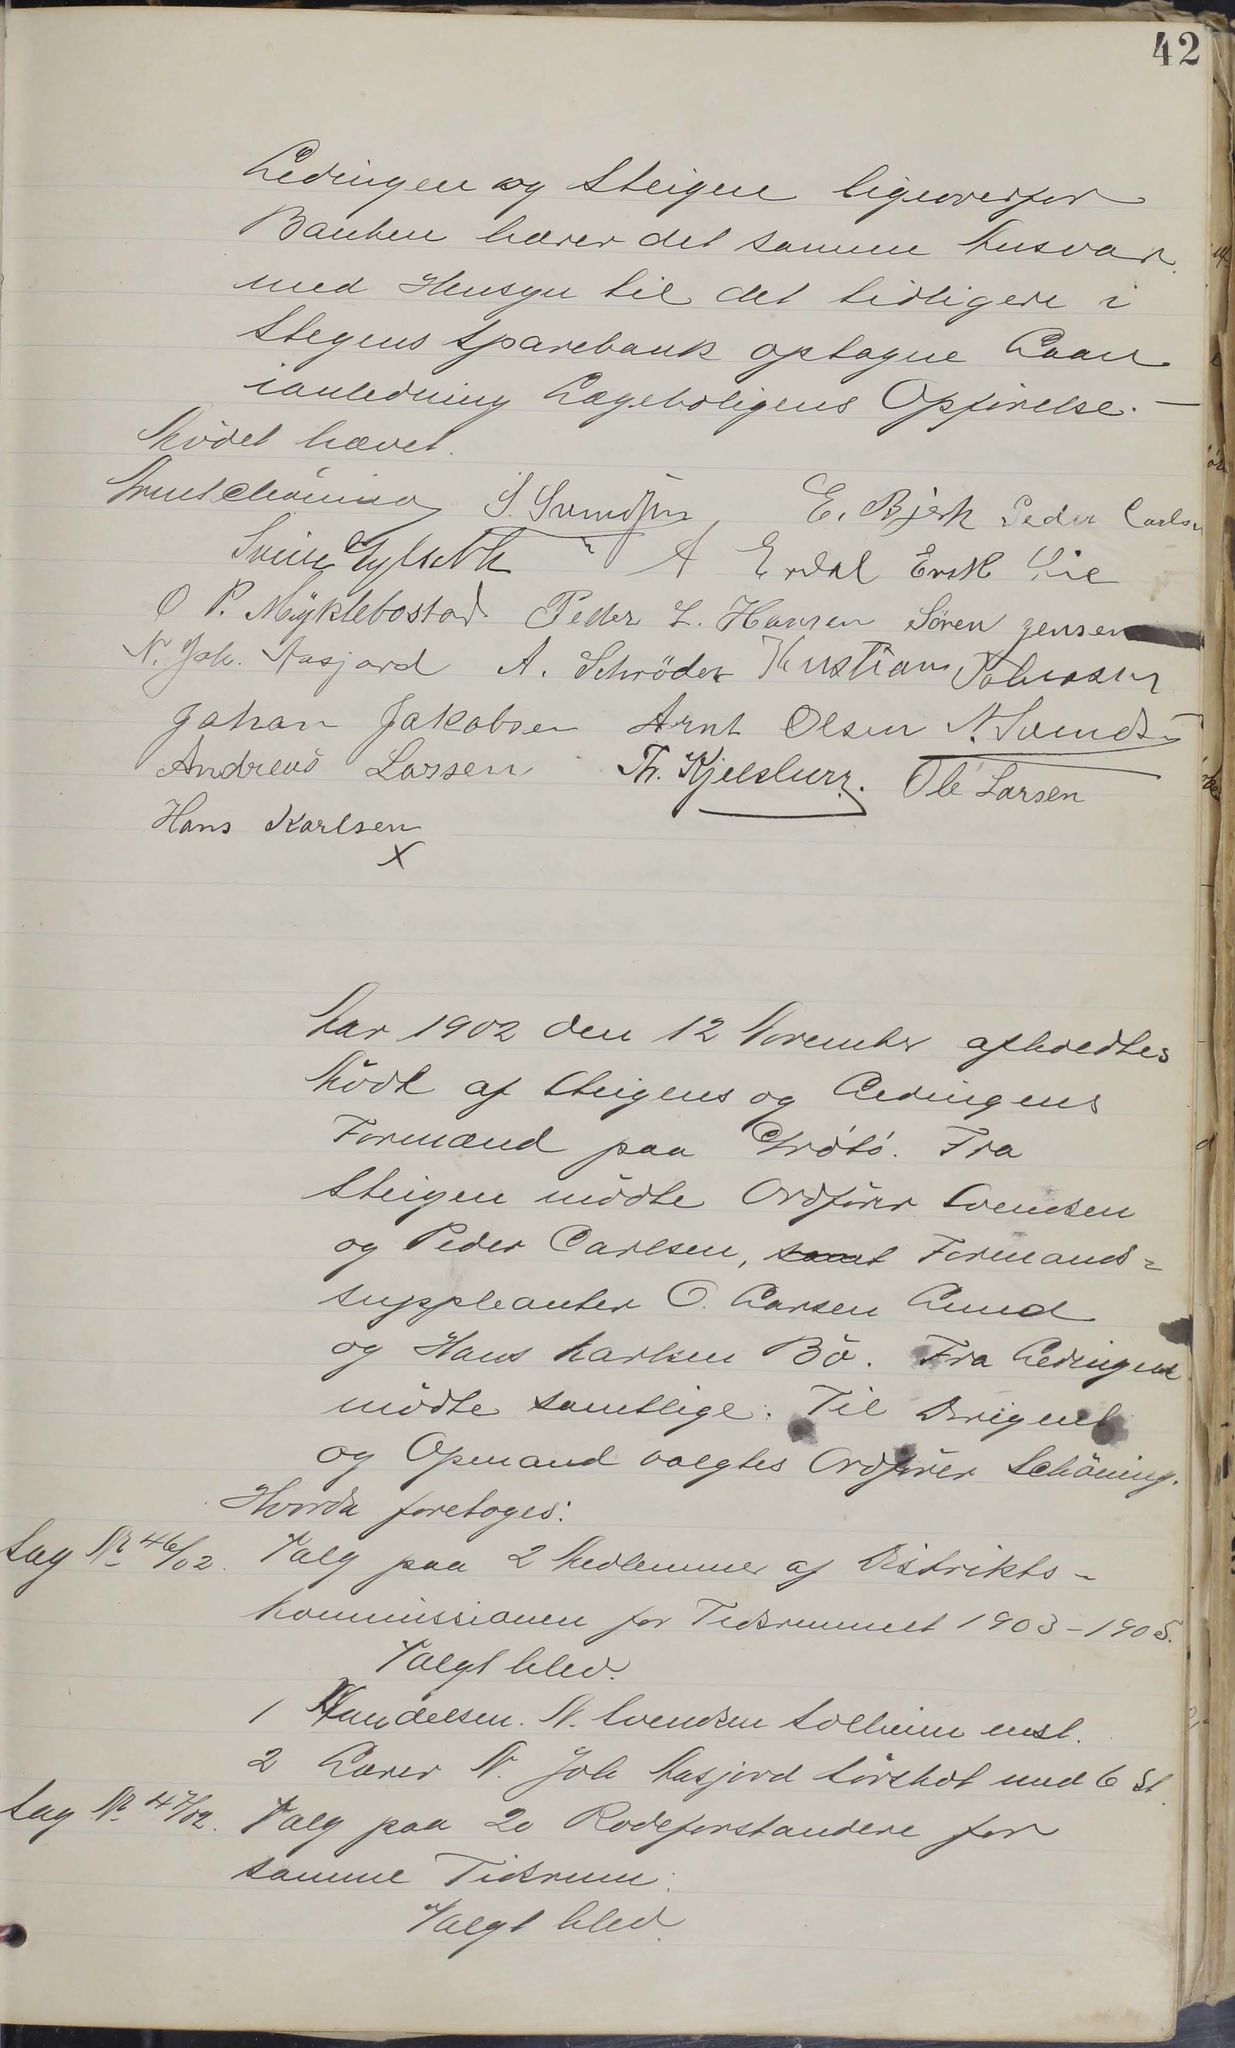 42
Ledingen og Steigen ligeoverfor
Banken bærer det samme Ansvar
med Hensyn til det tidligere i
Stegens Sparebank optagne Laan
ianledning Lægeboligens Opførelse. —
Mödet hævet.
Schöning S. Svendsen E. Bjerk Peder Carlsen
A Erdal Erik Lie
O P. Myklebostad Peder L. Hansen Søren Jensen
N. Joh. Aasjord A. Schröder Kristian Johnsen
Johan Jakobsen Arnt Olsen N. Svendsen
Andreas Larsen Th. Kjelsberg. Ole Larsen
Hans Karlsen
X
Aar 1902 den 12 November afholdtes
Möde af Steigens og Ledingens
Formænd paa Grötö. Fra
Steigen mödte Ordförer Svendsen
og Peder Carlsen, samt Formands=
suppleanter O. Larsen Lund
og Hans Karlsen Bö. Fra Ledingen
mödte samtlige. Til Dirigent
og Opmand valgtes Ordförer Schöning.
Hvorda foretoges:
Sag No 46/02. Valg paa 2 Medlemmer af Distrikts-
kommissionen for Tidsrummet 1903-1905.
Valgt blev.
1 Handelsm. N. Svendsen Solheim enst.
2 Lærer N. Joh Aasjord Sörskot med 6 St.
Sag No 47/02. Valg paa 20 Rodeforstandere for
samme Tidsrum.
Valgt blev